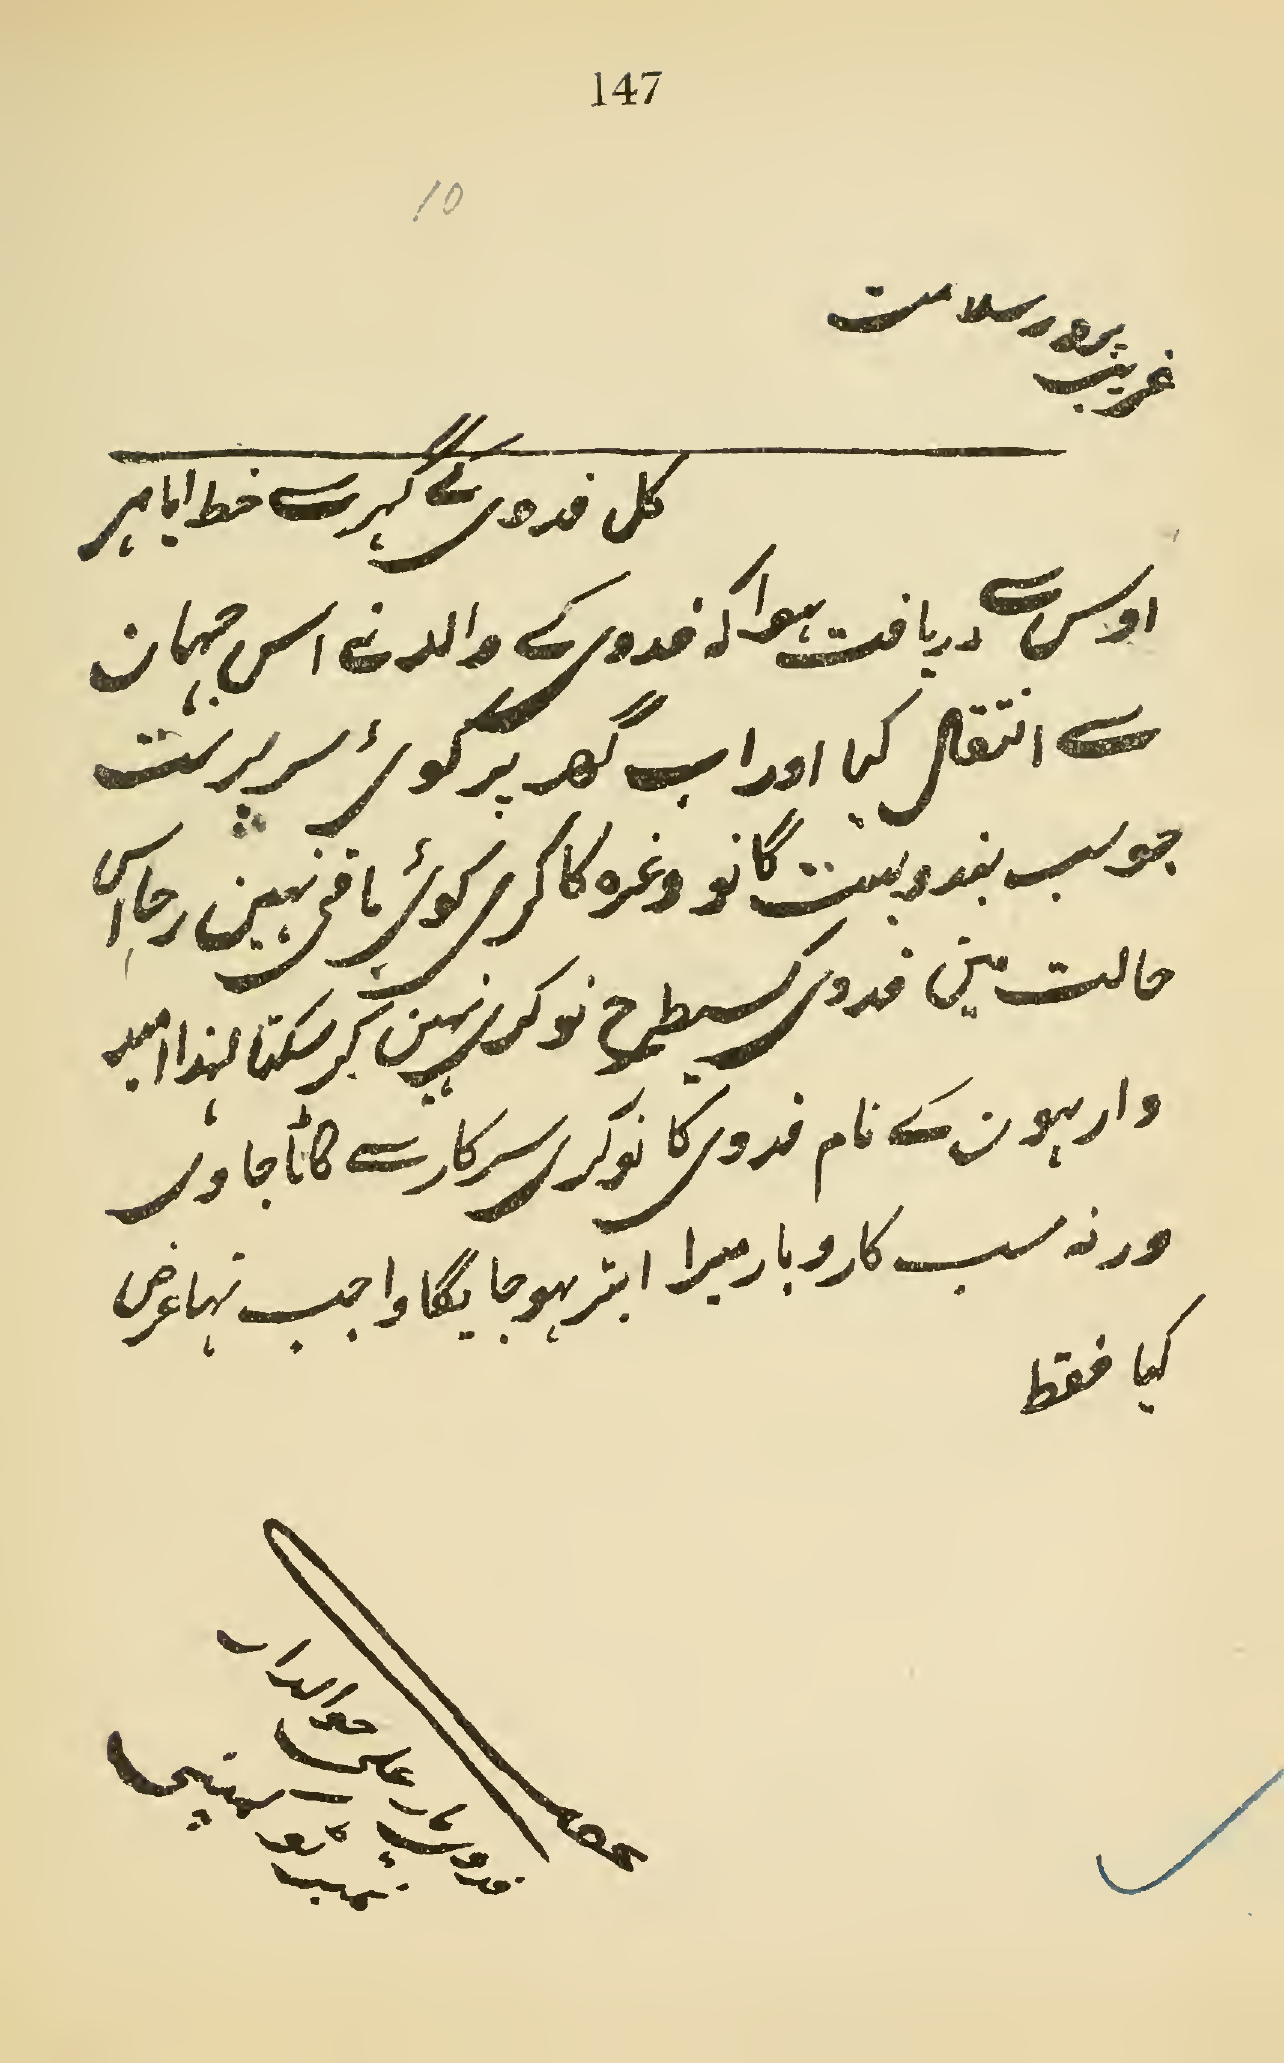 147
10
غریب پرور سلامت
کل فدوی کے گہر سے خط ایا ہر
اوس سے دریافت ہوا کہ فدوی کے والد نے اس جہان
سے انتقال کیا اور اب گھر پر کوئ سرپرست
جو سب بندوبست گانو وغرہ کا کری کوئ باقی نہین رہا اس
حالت مین فدوی کسیطرح نوکری نہین کر سکتا لہذا امید
وار ہون کے نام فدوی کا نوکری سرکار سے کاٹا جاوی
ورنہ سب کاروبار میرا ابتر ہو جایگا واجب تہا عرض
کیا فقط
فدوی یار علی حوالدار
نمبر کمپنی